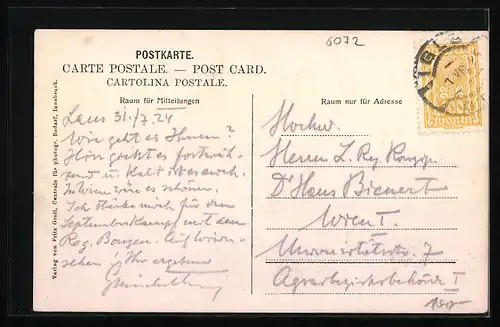 6072
POSTKARTE.
CARTE POSTALE. — POST CARD.
CARTOLINA POSTALE.
Raum für Mitteilungen
Raum nur für Adresse
IGLS
Lans 31./7.24
Wie geht es Ihnen?
Hier
und Kalt ist es auch.
In Wien wäre es schöner.
Ich stärke mich für den
Septemberkampf mit dem
Reg. Auf Wieder-
sehen Ihr ergebener
Hochw.
Herrn L. Reg.
Dr Hans Bienert
Wien I.
Universitätsstr. 7
Agrarbezirksbehörde I
100
Verlag von Fritz Gratl, Centrale für photogr. Bedarf, Innsbruck.